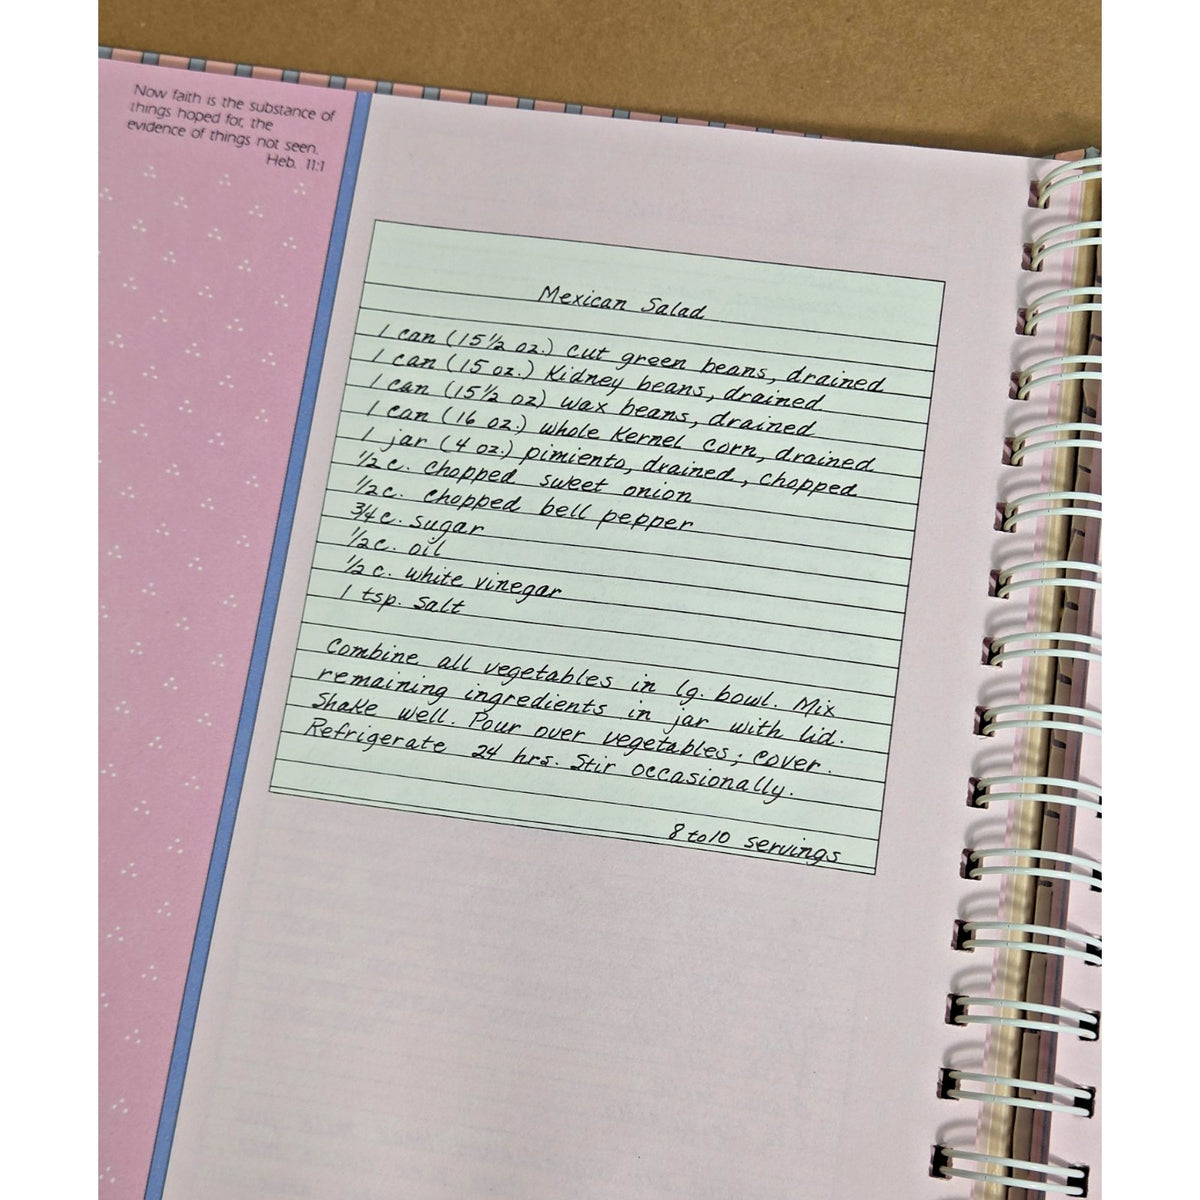 Now faith is the substance of
things hoped for, the
evidence of things not seen.
Heb. 11:1
Mexican Salad
1 can (15 1/2 oz.) cut green beans, drained
1 can (15 oz.) Kidney beans, drained
1 can (15 1/2 oz) wax beans, drained
1 can (16 oz.) whole Kernel corn, drained
1 jar (4 oz.) pimiento, drained, chopped
1/2 c. chopped sweet onion
1/2 c. chopped bell pepper
3/4 c. sugar
1/2 c. oil
1/2 c. white vinegar
1 tsp. salt
Combine all vegetables in lg. bowl. Mix
remaining ingredients in jar with lid.
Shake well. Pour over vegetables; cover.
Refrigerate 24 hrs. Stir occasionally.
8 to 10 servings